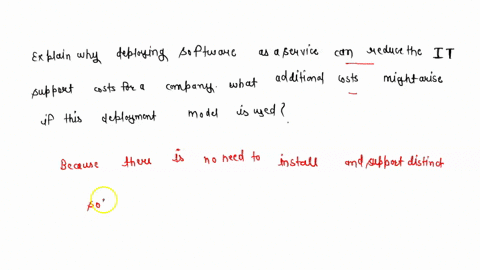 Explain why deploying software as a service can reduce the IT
support costs for a company. what additional costs might arise
if this deployment model is used?
Because there is no need to install and support distinct
so